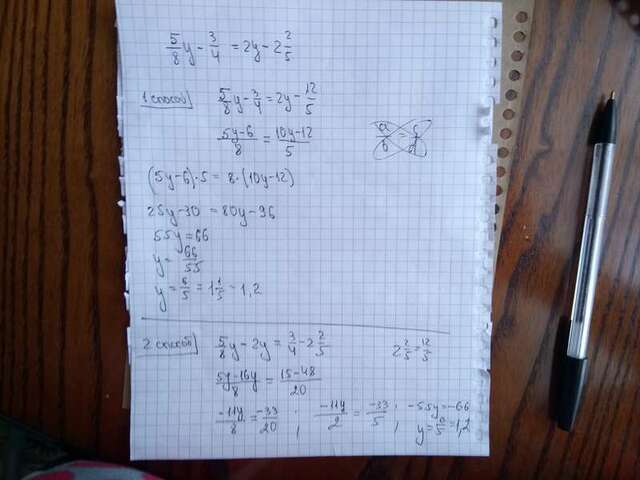 5/8 y - 3/4 = 2y - 2 2/5
1 способ
5/8 y - 3/4 = 2y - 12/5
(5y-6)/8 = (10y-12)/5
a/b = c/d
(5y-6)·5 = 8·(10y-12)
25y-30 = 80y-96
55y = 66
y = 66/55
y = 6/5 = 1 1/5 = 1.2
2 способ
5/8 y - 2y = 3/4 - 2 2/5
2 2/5 = 12/5
(5y-16y)/8 = (15-48)/20
-11y/8 = -33/20 ; -11y/2 = -33/5 ; -55y = -66
y = 6/5 = 1,2